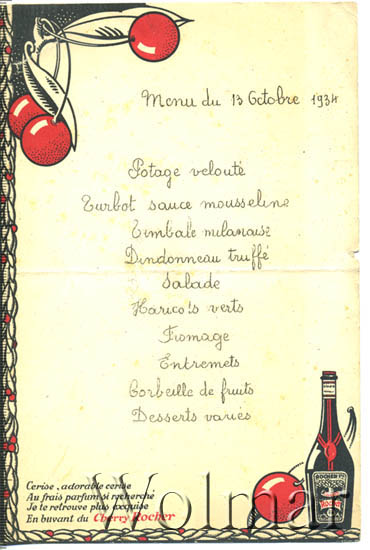 Menu du 13 Octobre 1934
Potage velouté
Turbot sauce mousseline
Timbale milanaise
Dindonneau truffé
Salade
Haricots verts
Fromage
Entremets
Corbeille de fruits
Desserts variés
Cerise, adorable cerise
Au frais parfum si recherché
Je te retrouve plus exquise
En buvant du Cherry Rocher
ROCHER
Wolmar